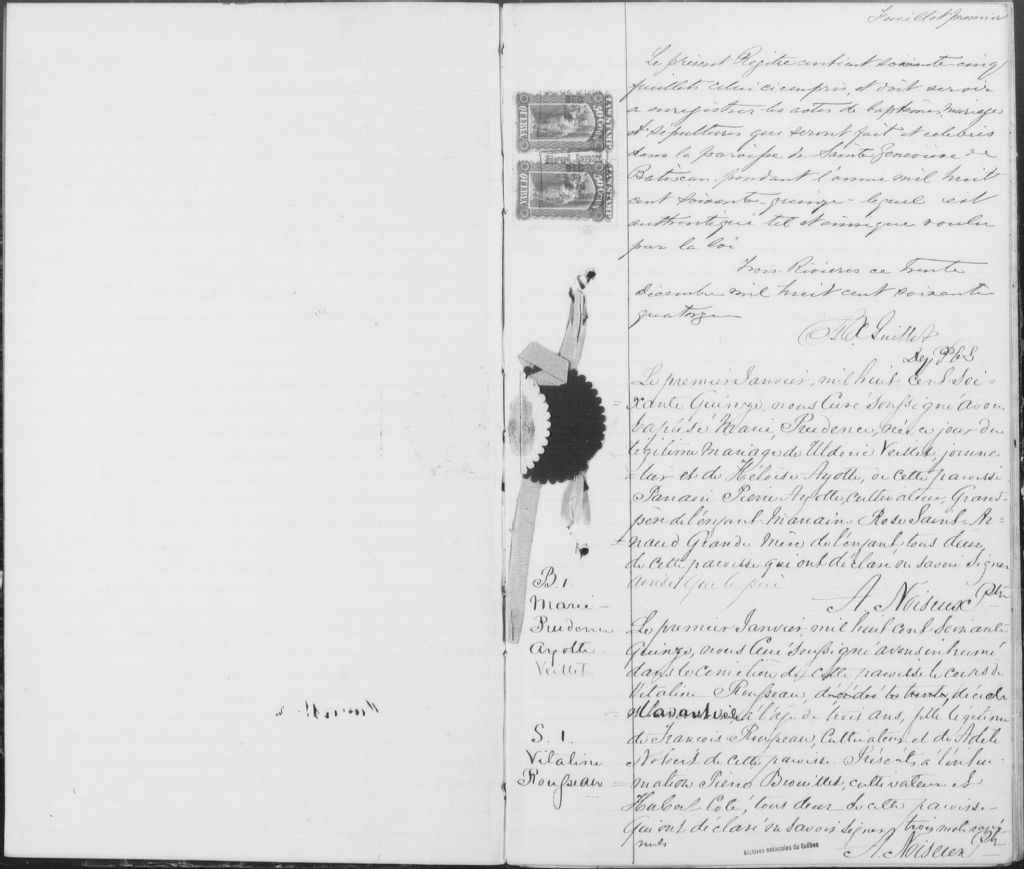 Feuillet premier
Le présent Régitre contient soixante-cinq
feuillets celui ci compris, et doit servir
a enregistrer les actes de baptêmes, mariages
et sépultures qui seront fait et célébrés
dans la paroisse de Sainte Geneviève de
Batiscan pendant l'année mil huit
cent soixante-quinze - lequel est
authentiqué tel et ainsi que voulu
par la loi
Trois-Rivières ce trente
décembre mil huit cent soixante
quatorze
Guillet
Dep. P b S
Le premier Janvier, mil huit cent soi-
xante Quinze, nous Curé soussigné avons
baptisé Marie, Prudence, née ce jour du
légitime mariage de Ulderic Veillet, journa-
-lier et de Héloïse Ayotte, de cette paroisse.
Parrain Pierre Ayotte, cultivateur, Grand-
père de l'enfant Marraine Rose Saint-Ar-
naud Grande Mère de l'enfant, tous deux
de cette paroisse qui ont déclaré ne savoir signer
que le père
A. Noiseux Ptre
B. 1.
Marie-
Prudence
Ayotte
Veillet
Le premier Janvier, mil huit cent soixante
Quinze, nous Curé soussigné avons inhumé
dans le cimetière de cette paroisse le corps de
Vitaline Rousseau, décédée
à l'âge de trois ans, fille légitime
de François Rousseau, Cultivateur et de Adèle
de cette paroisse. Présents à l'inhu-
-mation Pierre Brouillet, cultivateur et
Hubert Coté, tous deux de cette paroisse
qui ont déclaré ne savoir signer, trois mots rayés
nuls
A. Noiseux Ptre
S. 1.
Vitaline
Rousseau
Archives nationales du Québec
LAW STAMP
QUEBEC